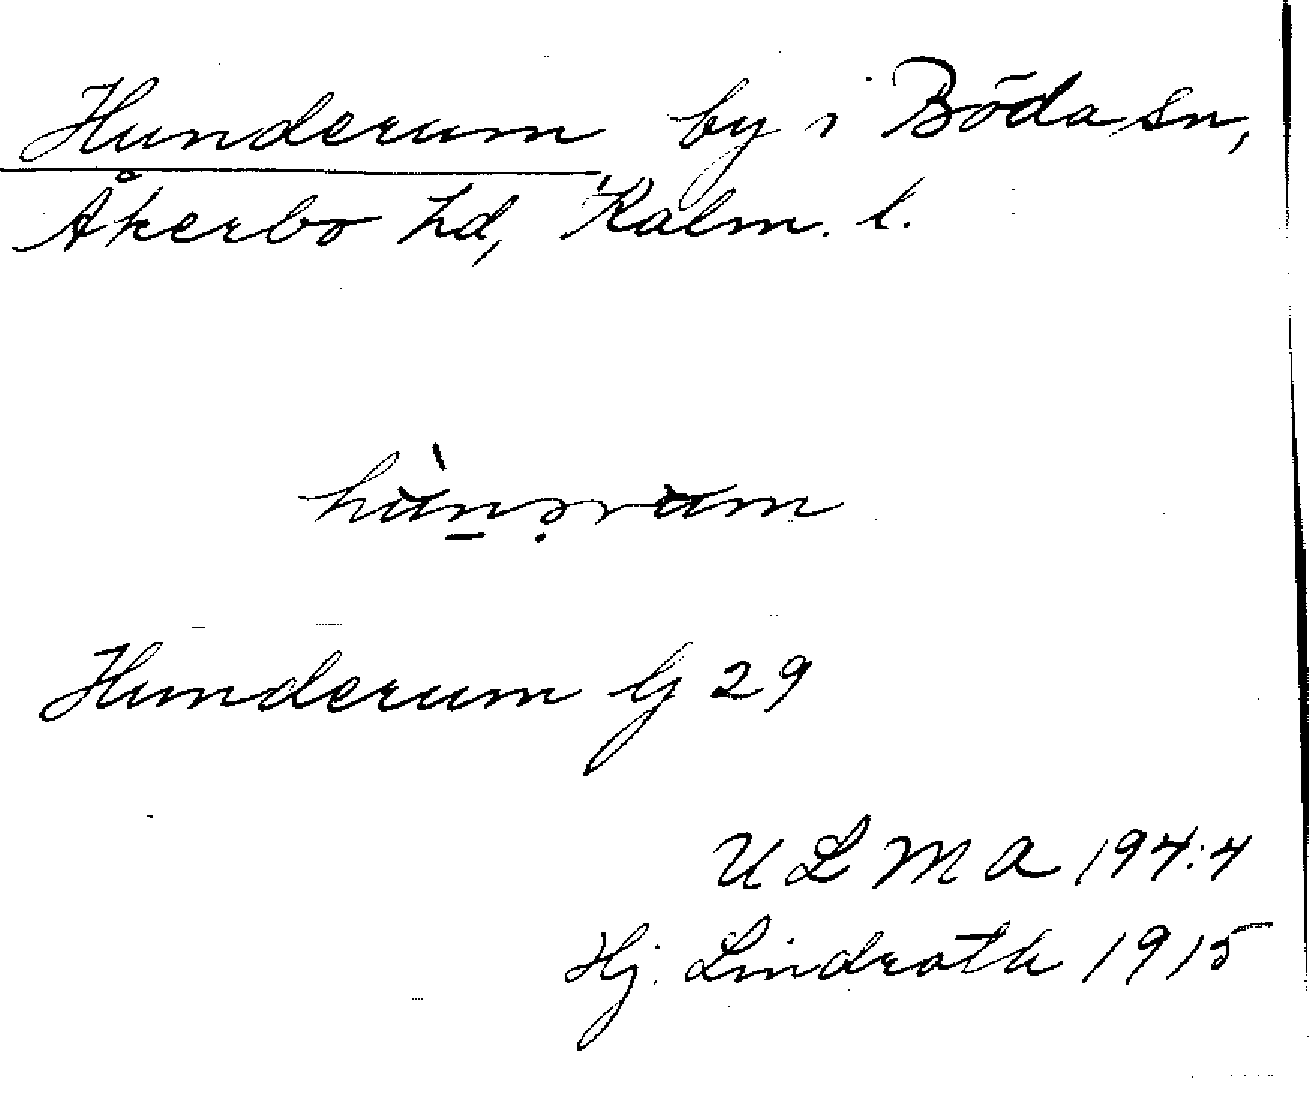 Hunderum by i Böda sn,
Åkerbo hd, Kalm. l.
Hunderum G 29
ULMA 194:4
Hj. Lindroth 1915